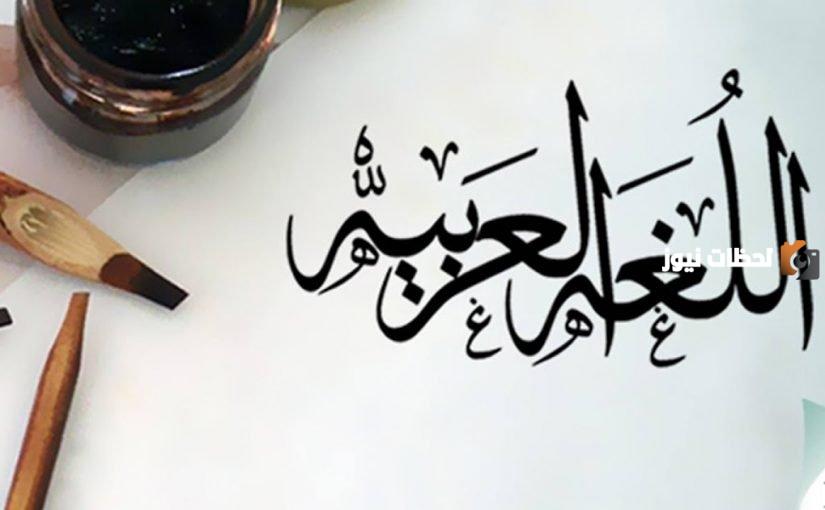 اللُغه العربيّه
لحظات نيوز